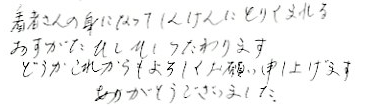 看者さんの身になってしんけんにとりくまれる
おすがたひしひしつたわります
どうかこれからもよろしくお願い申し上げます
ありがとうございました.